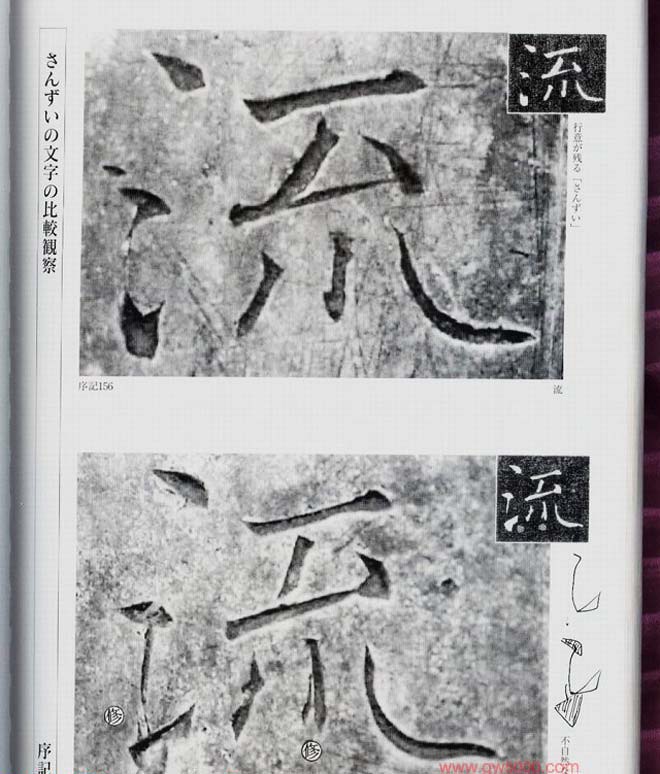 さんずいの文字の比較観察
流
流
行意が残る「さんずい」
序記156
流
流
流
修
修
不自然
序記